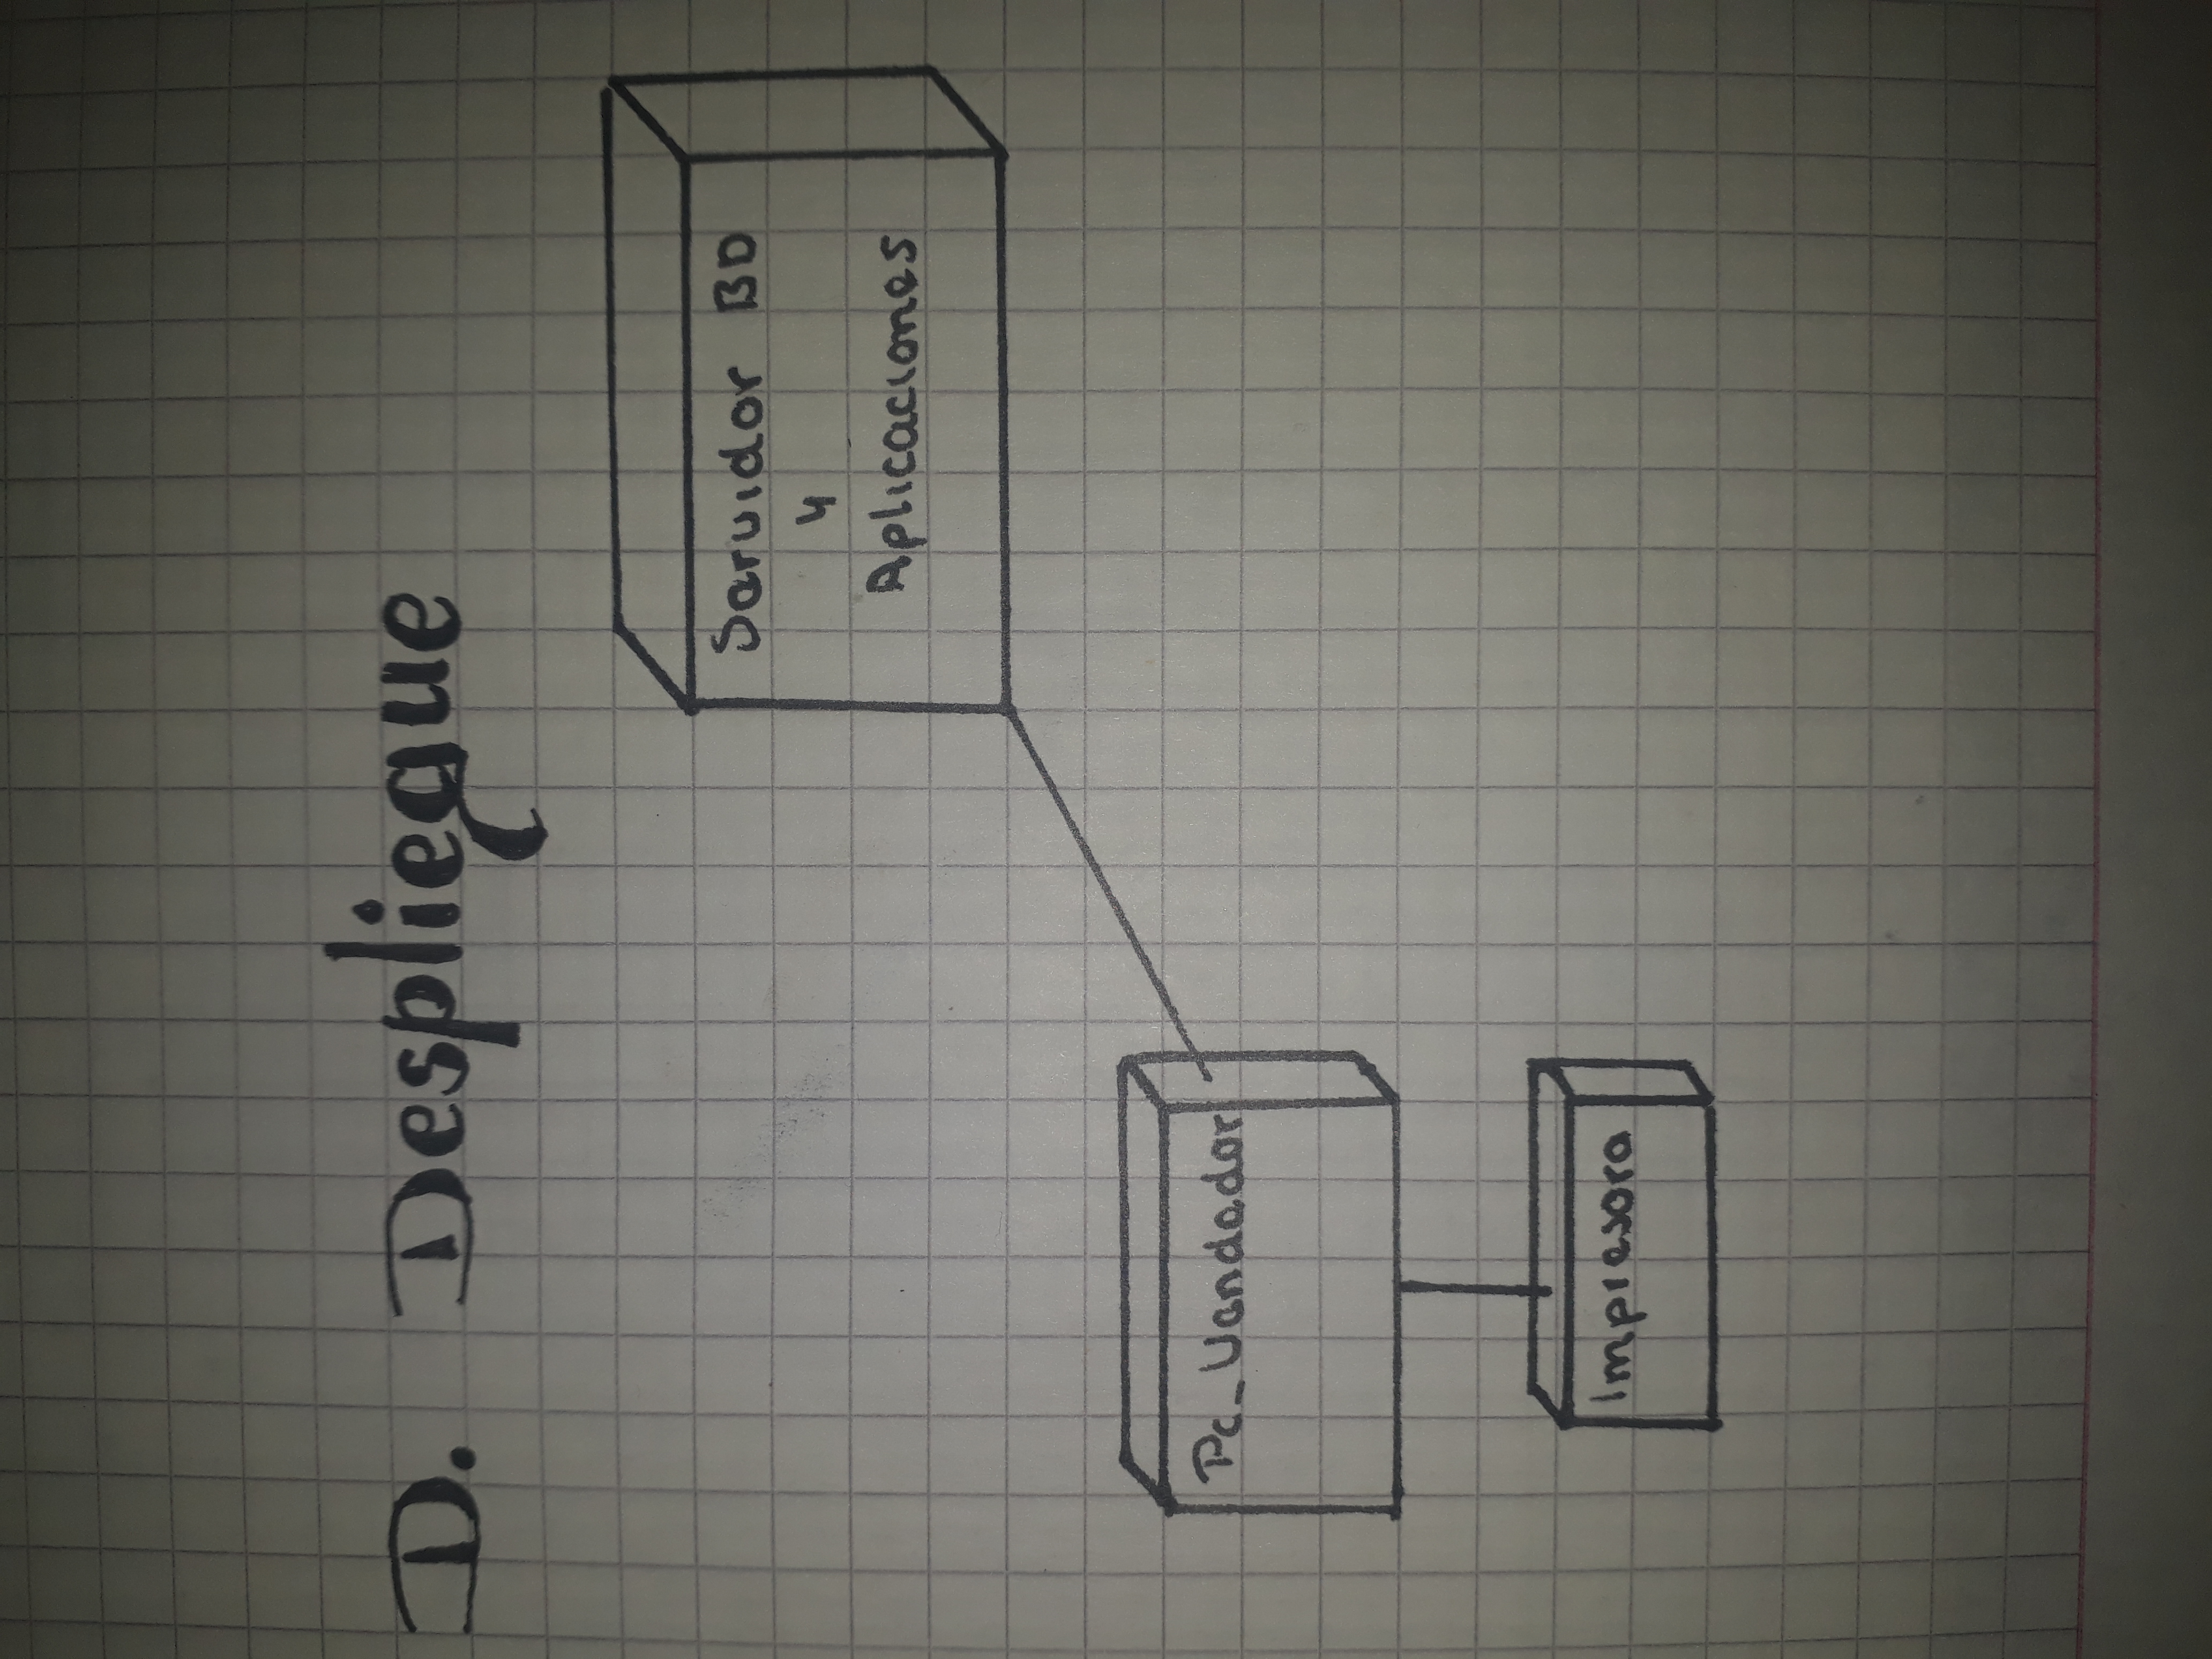 D. Despliegue
Servidor BD
y
Aplicaciones
Pc_Vendedor
Impresora